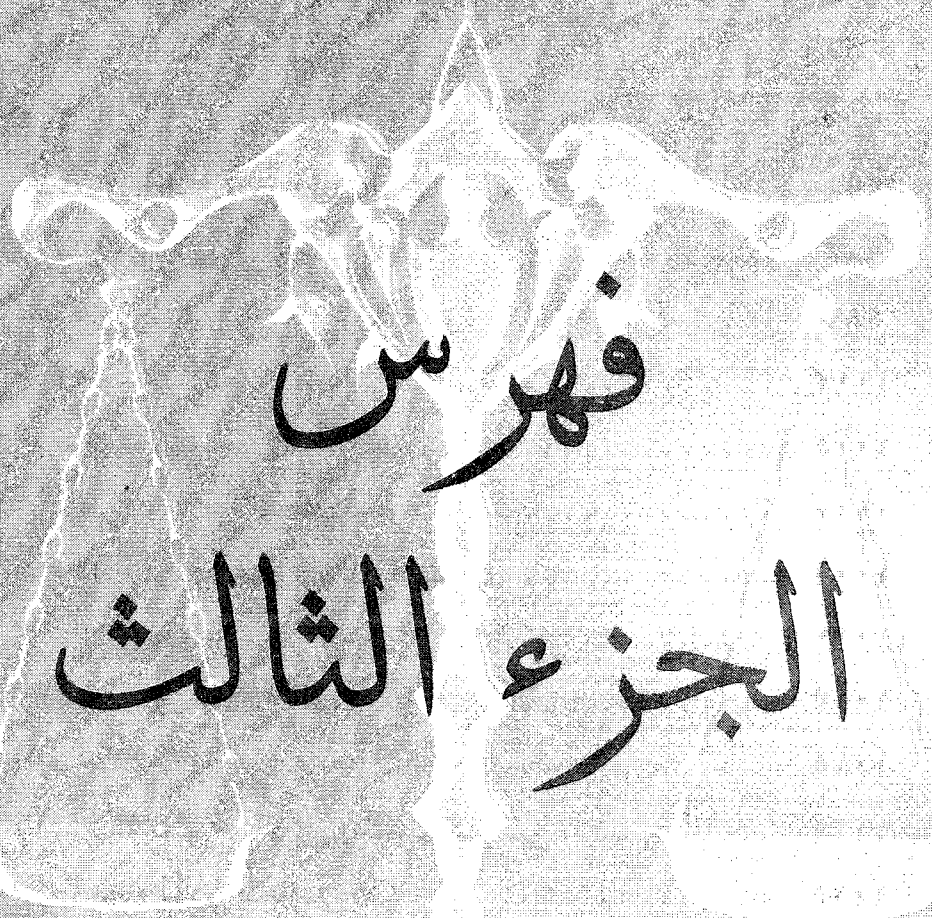 فهرس
الجزء الثالث